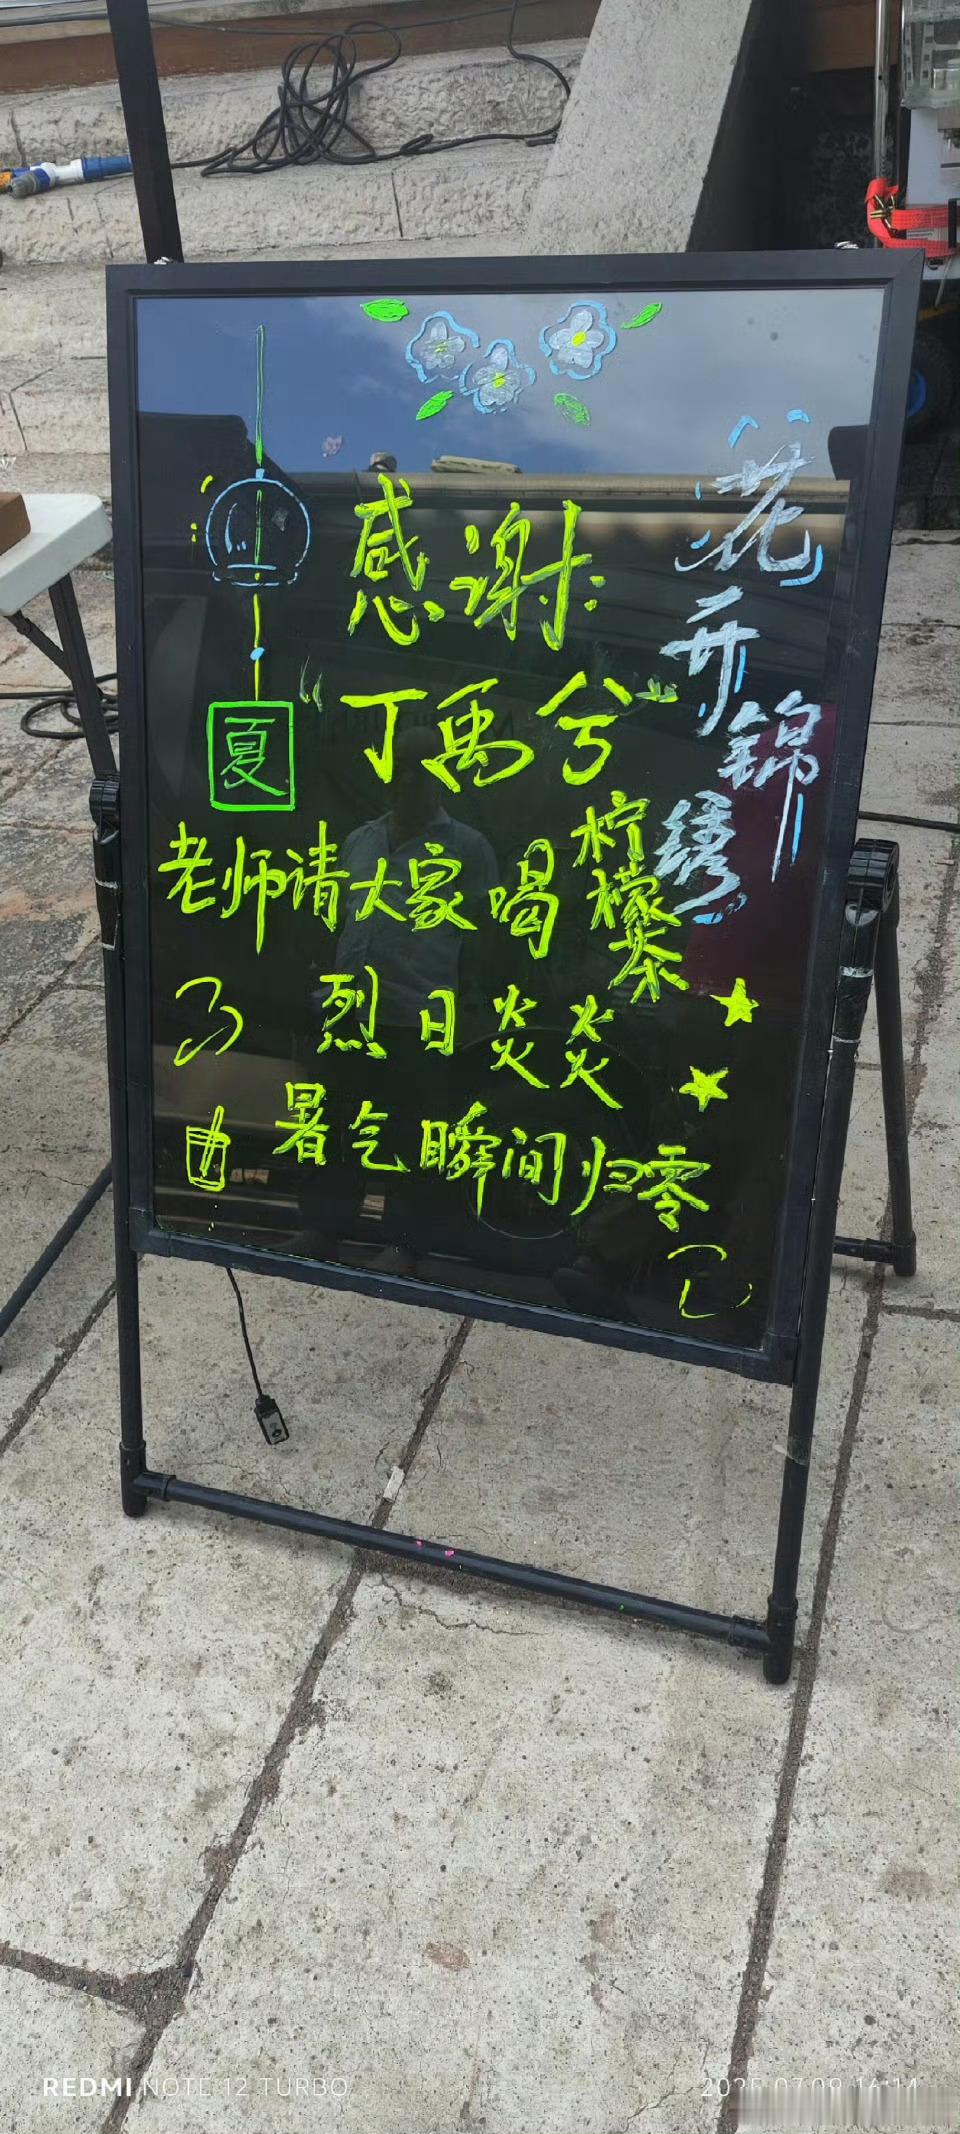 感谢
"丁禹兮"
夏
老师请大家喝柠檬茶
烈日炎炎
暑气瞬间归零
花开锦绣
REDMI NOTE 12 TURBO
2025.07.09 16:14